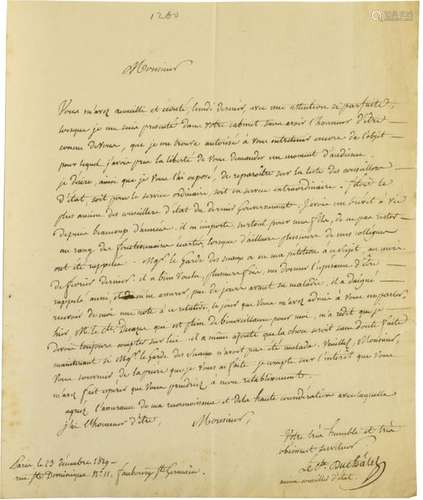 1260
Monsieur
Vous m'avez accueilli et écouté, lundi dernier, avec une attention si parfaite,
lorsque je me suis présenté dans votre cabinet sans avoir l'honneur d'être
connu de vous, que je me trouve autorisé à vous entretenir encore de l'objet
pour lequel j'avais pris la liberté de vous demander un moment d'audience.
je désire, ainsi que je vous l'ai exposé, de reparaître sur la liste des conseillers
d'état, soit pour le service ordinaire, soit en service extraordinaire. j'étais le
plus ancien des conseillers d'état du dernier gouvernement. j'avais un
depuis beaucoup d'années. il m'importe surtout pour ma fille, de ne pas rester
au rang des fonctionnaires écartés, lorsque d'ailleurs plusieurs de mes collègues
ont été rappelés. Mgr le garde des sceaux a eu ma pétition à ce sujet, au mois
de février dernier. il a bien voulu, plusieurs fois, me donner l'espérance d'être
rappelé aussi et m'en assurer peu de jours avant sa maladie. il a daigné
recevoir de moi une note à ce relative, le jour que vous m'avez admis à vous en parler.
hier M. que est plein de bienveillance pour moi, m'a redit que je
devais toujours compter sur lui. il a même ajouté que la chose serait sans doute faite
maintenant si Mgr le garde des sceaux n'avait pas été malade. veuillez, Monsieur,
vous souvenir de la prière que je vous ai faite. je compte sur l'intérêt que vous
m'avez fait espérer que vous prendriez à mon rétablissement.
agréez l'assurance de ma reconnaissance et de la haute considération avec laquelle
j'ai l'honneur d'être,
Monsieur,
Votre très humble et très
obéissant serviteur
Le Cte Duchâtel
ancien conseiller d'état.
Paris le 23 décembre 1829
rue St Dominique No 11, faubourg St Germain.